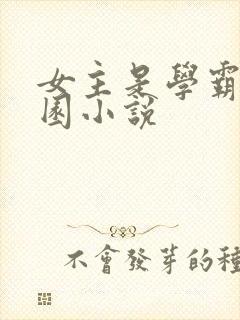 女主是學霸
園小説
不會發芽的種